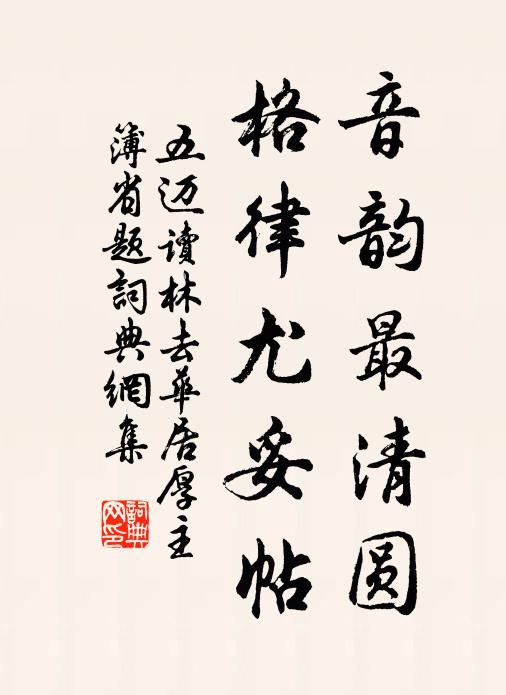 音韵最清圆
格律尤妥帖
五迈读林去华居厚主
簿省题詞典網集
詞典
网印